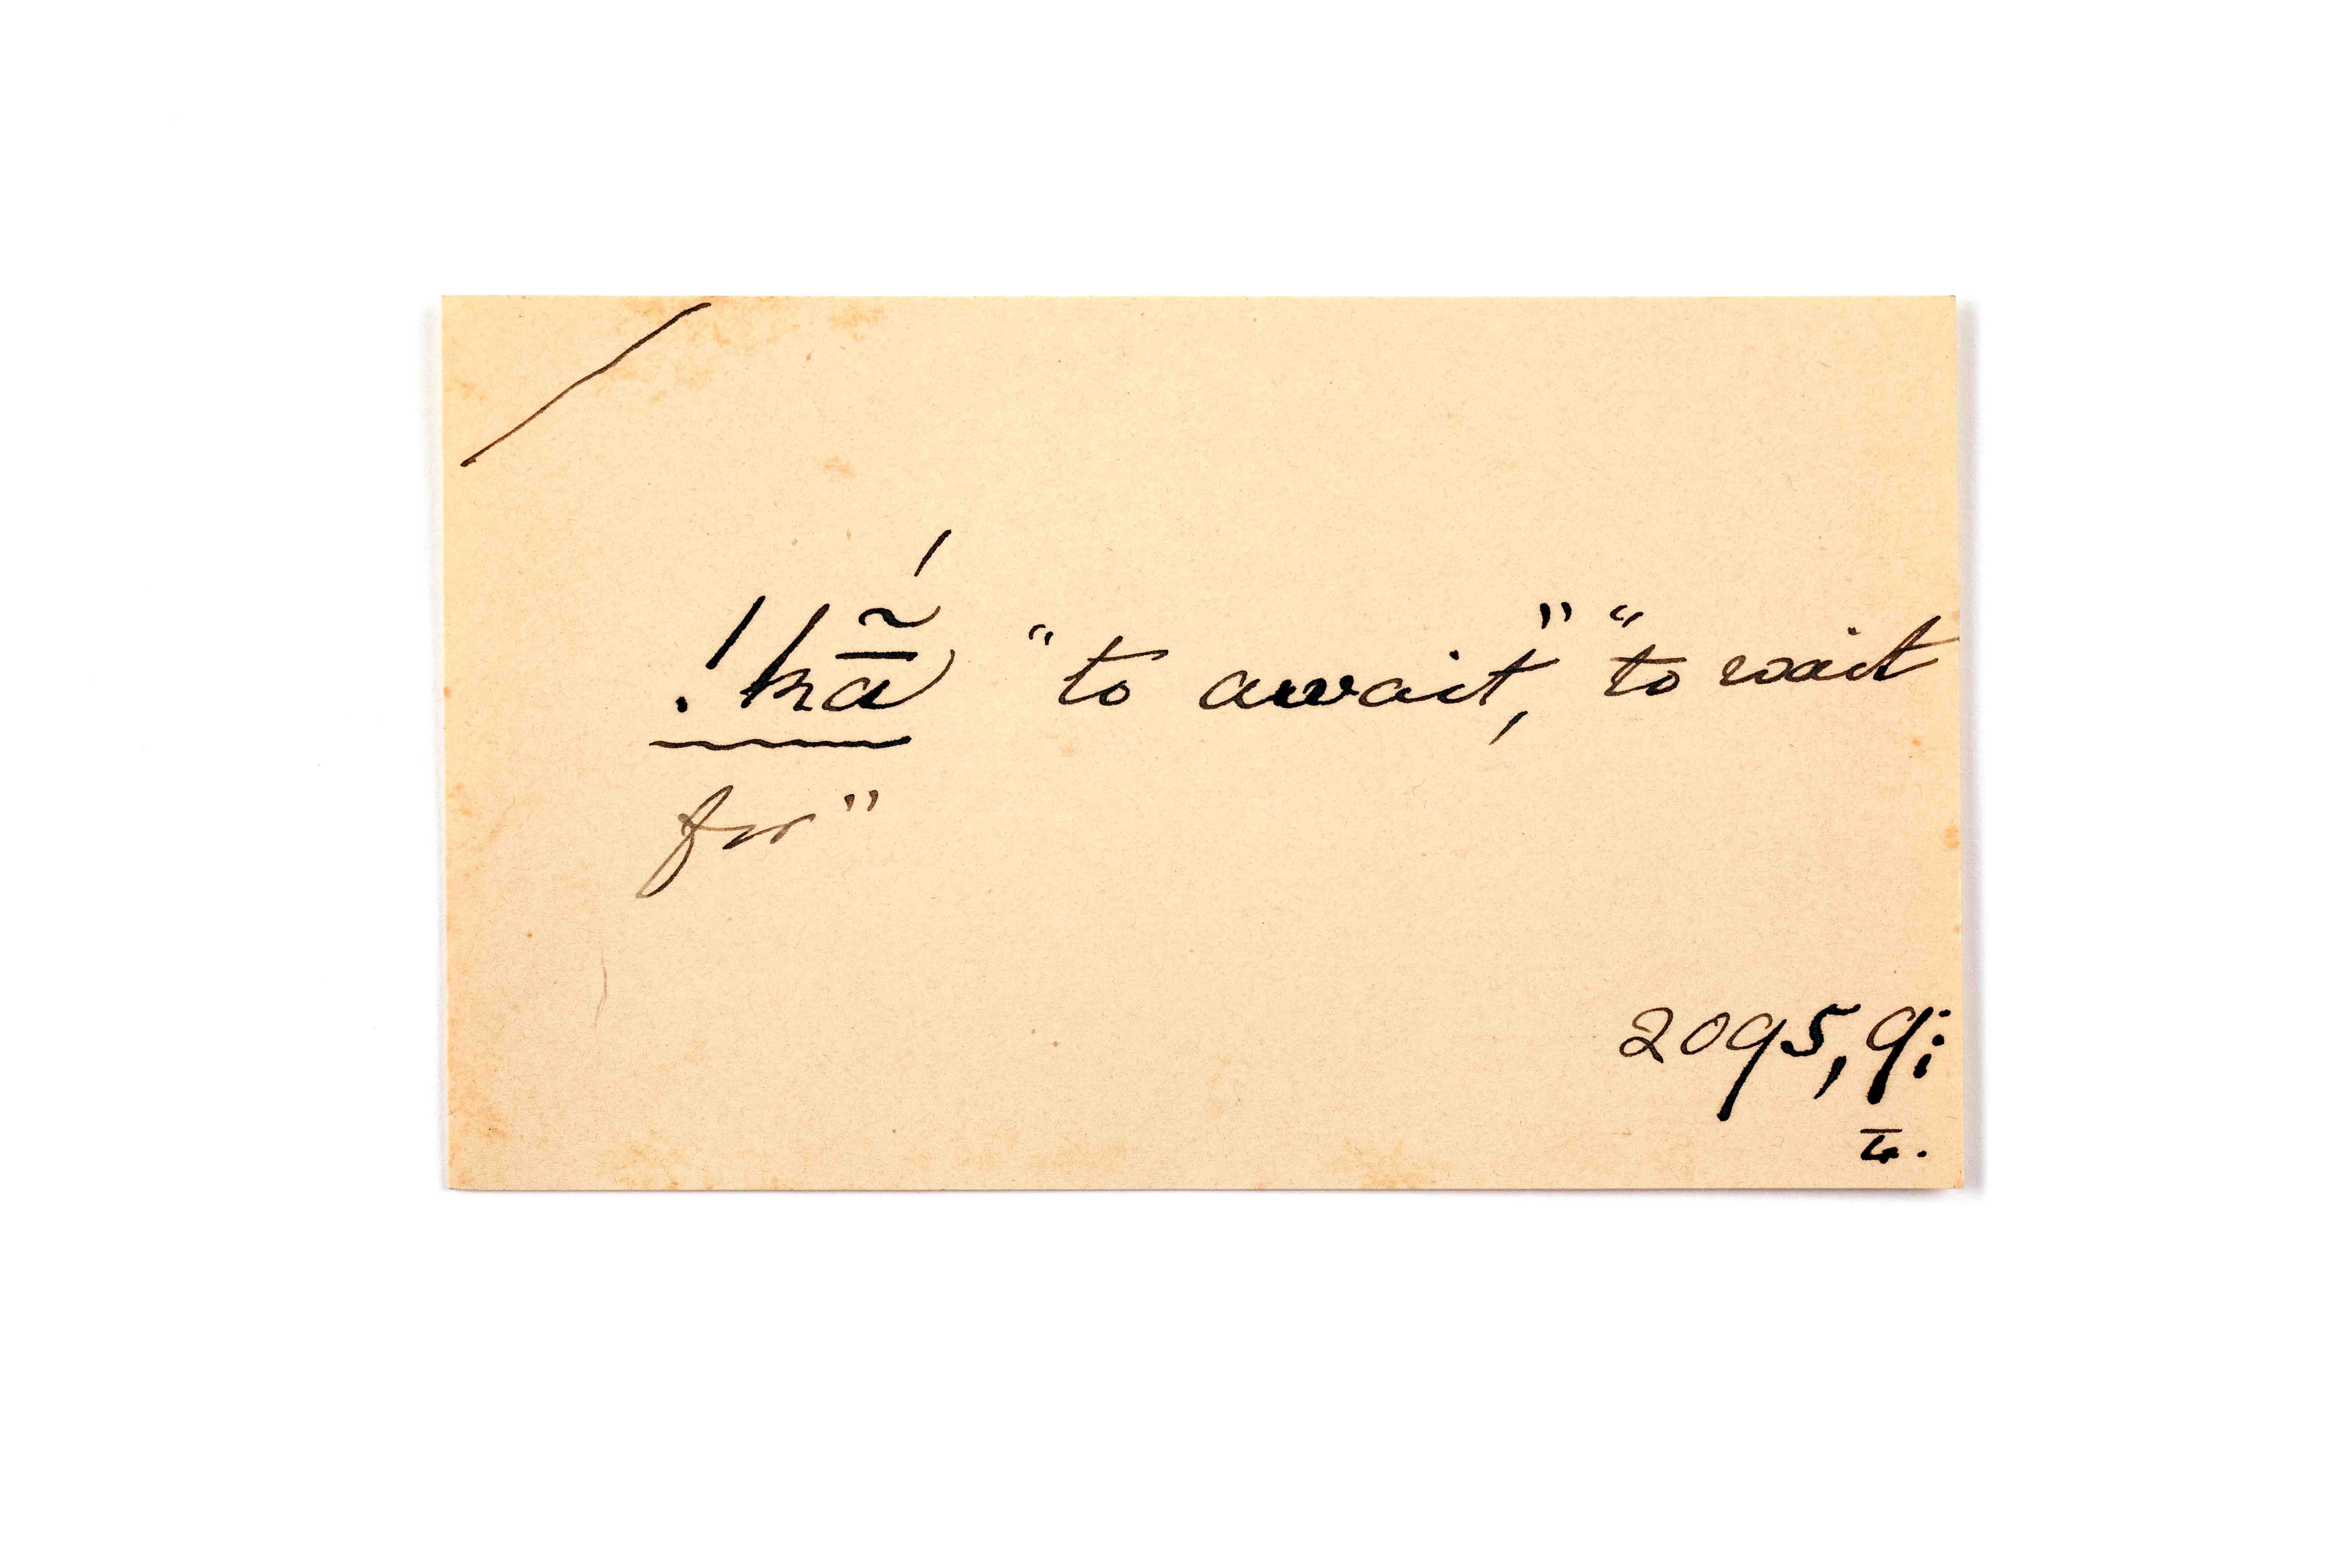 !kã̄́ "to await," "to wait
for"
2095, 9;
4.